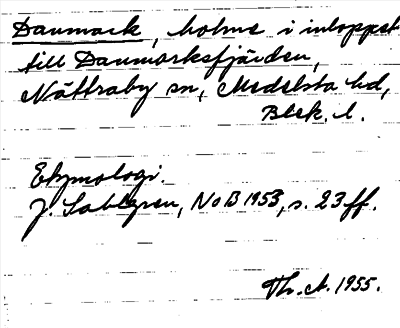 Danmark, holme i inloppet
till Danmarksfjärden,
Nättraby sn, Medelsta hd,
Blek. l.
Etymologi.
J. Sahlgren, NoB 1953, s. 23 ff.
Th. A. 1955.